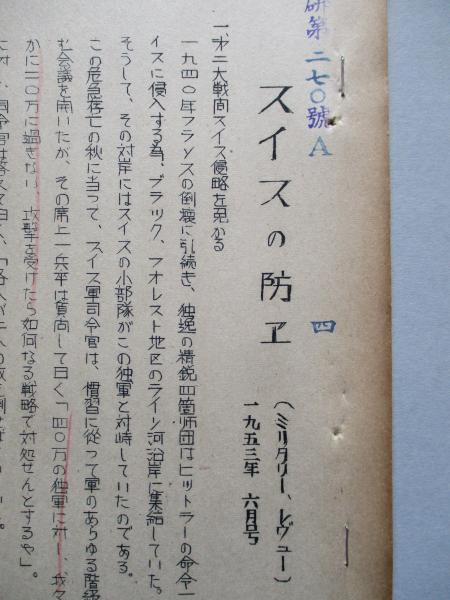 研第二七〇號A
四
スイスの防ヱ
(ミリタリー、レヴュー)
一九五三年 六月号
一、第二大戦間スイス侵略を免かる
一九四〇年フランスの倒壊に引続き、独逸の精鋭四箇師団はヒットラーの命令一
イスに侵入する為、ブラック、フオレスト地区のライン河沿岸に集結していた。
そうして、その対岸にはスイスの小部隊がこの独軍と対峙していたのである。
この危急存亡の秋に当って、スイス軍司令官は、慣習に従って軍のあらゆる階級
会議を開いたが、その席上一兵卒は質問して曰く「四〇万の独軍に対し、我々
かに二〇万に過ぎない、攻撃を受けたら如何なる戦略で対処せんとするや」。
司令官は答えて曰く、「各人が二人の敵を倒せば